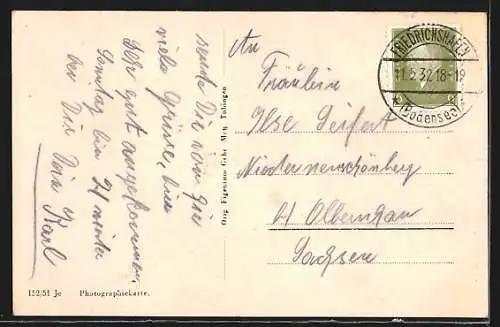 sende Dir von hier
viele Grüsse, bin
sehr gut angekommen,
Sonntag bin ich wieder
bei Dir Dein
Karl
Orig. Eigentum Gebr. Metz, Tübingen
152/51 Je Photographiekarte.
An
Fräulein
Ilse Seifert
Niederneuschönberg
b/ Olbernhau
Sachsen
FRIEDRICHSHAFEN
11.5.32.18-19
(Bodensee)